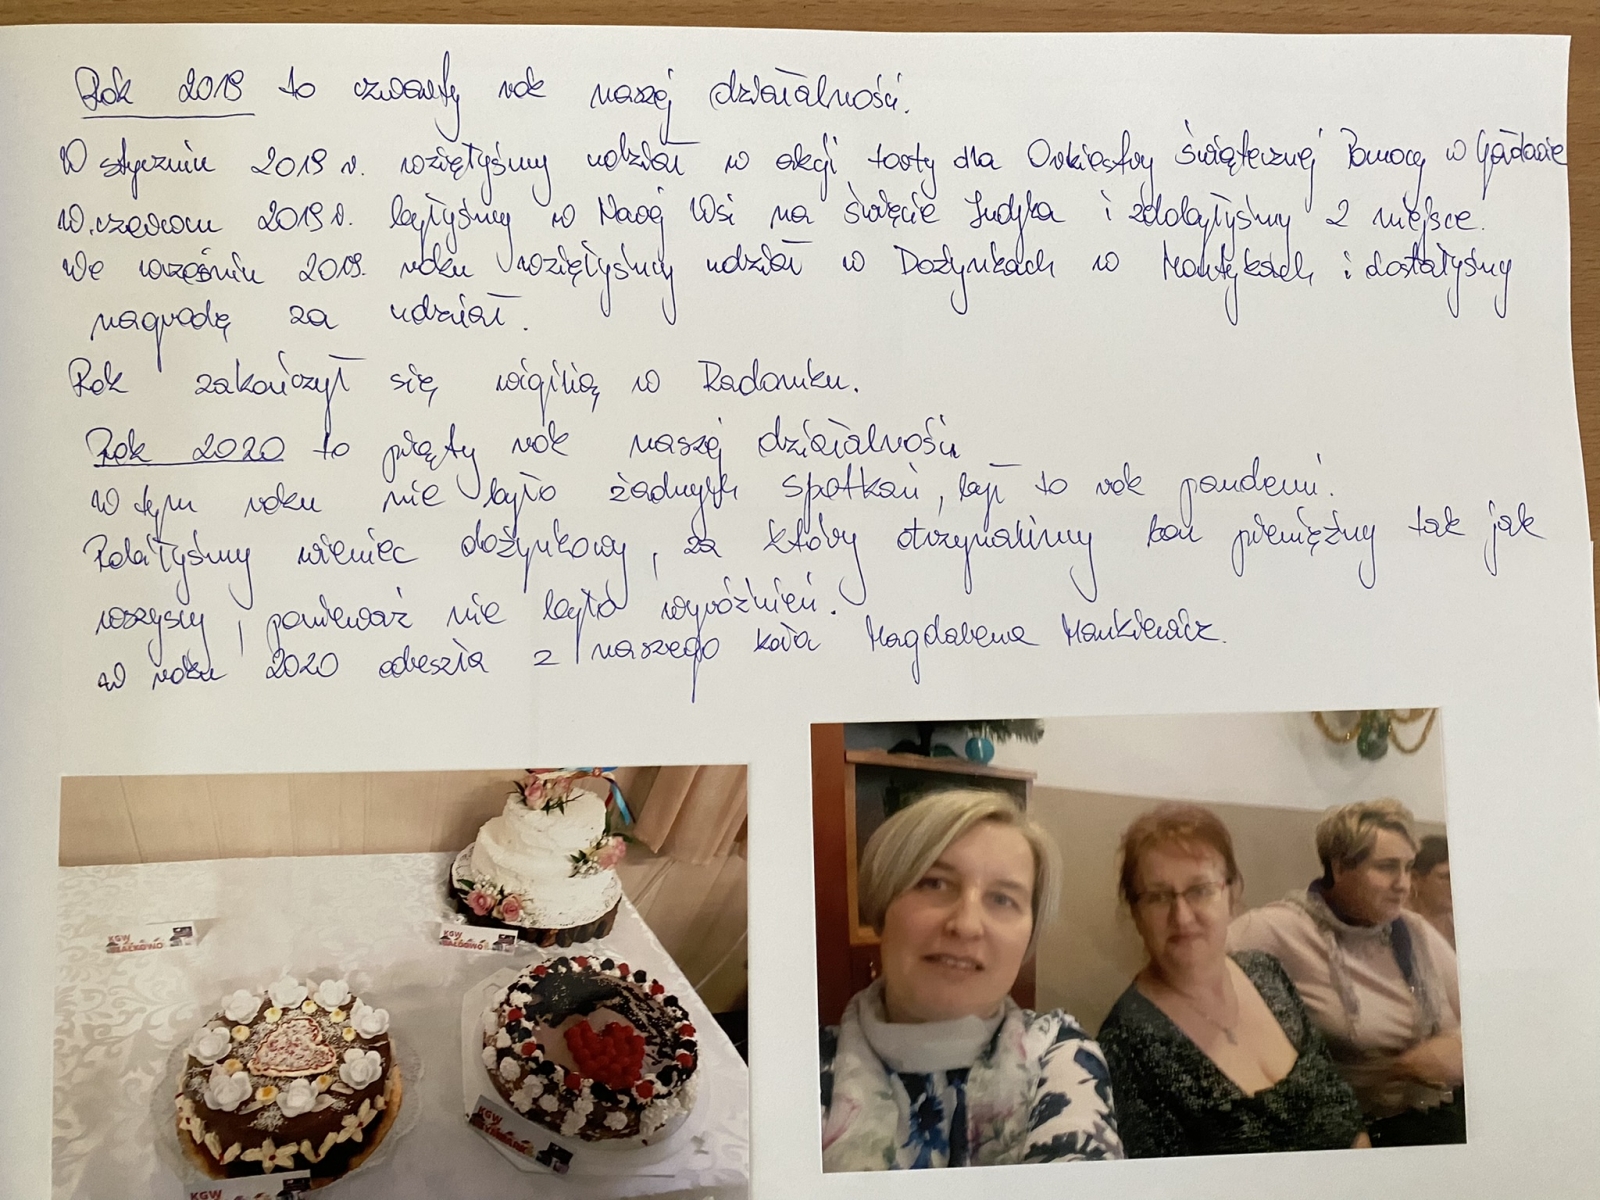 Rok 2019 to czwarty rok naszej działalności.
W styczniu 2019 r. wzięłyśmy udział w akcji torty dla Orkiestry Świątecznej Pomocy w
W czerwcu 2019 r. byłyśmy w Nowej Wsi na święcie Indyka i zdobyłyśmy 2 miejsce.
We wrześniu 2019. roku wzięłyśmy udział w Dożynkach w Mortęksach i dostałyśmy
nagrodę za udział.
Rok zakończył się wigilią w Radomku.
Rok 2020 to piąty rok naszej działalności
W tym roku nie było żadnych spotkań, był to rok pandemi.
Robiłyśmy wieniec dożynkowy, za który otrzymaliśmy bon pieniężny tak jak
wszyscy, ponieważ nie było wyróżnień.
W roku 2020 odeszła z naszego koła Magdalena Mankiewicz.
KGW
KGW
KGW
KGW